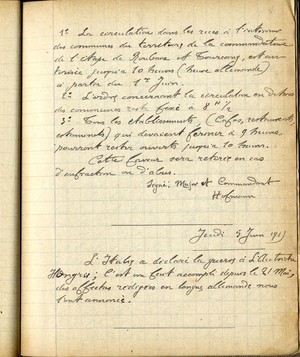 1° La circulation dans les rues à l'intérieur
des communes du territoire de la commandanture
de l'étape de Roubaix et Tourcoing, est au-
torisée jusqu'à 10 heures (heure allemande)
à partir du 1er Juin.
2° L'ordre concernant la circulation en dehors
des communes reste fixé à 8 h 1/2
3° Tous les établissements (Cafés, restaurants,
estaminets) qui devaient fermer à 9 heures
pourront rester ouverts jusqu'à 10 heures.
Cette faveur sera retirée en cas
d'infraction ou d'abus.
Signé: Major et Commandant
Hofmann
Jeudi 3 Juin 1915
L'Italie a déclaré la guerre à L'Autriche
Hongrie; C'est un fait accompli depuis le 21 Mai,
des affiches rédigées en langue allemande nous
l'ont annoncé.